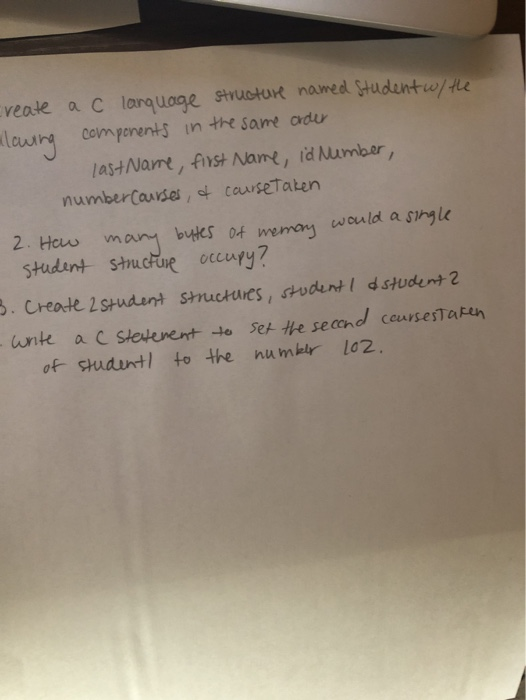 reate a C language structure named Student w/ the
llowing components in the same order
lastName, first Name, id Number,
numberCourses, & courseTaken
2. How many bytes of memory would a single
student structure occupy?
3. Create 2 student structures, student1 & student2
write a C statement to set the second coursesTaken
of student1 to the number 102.